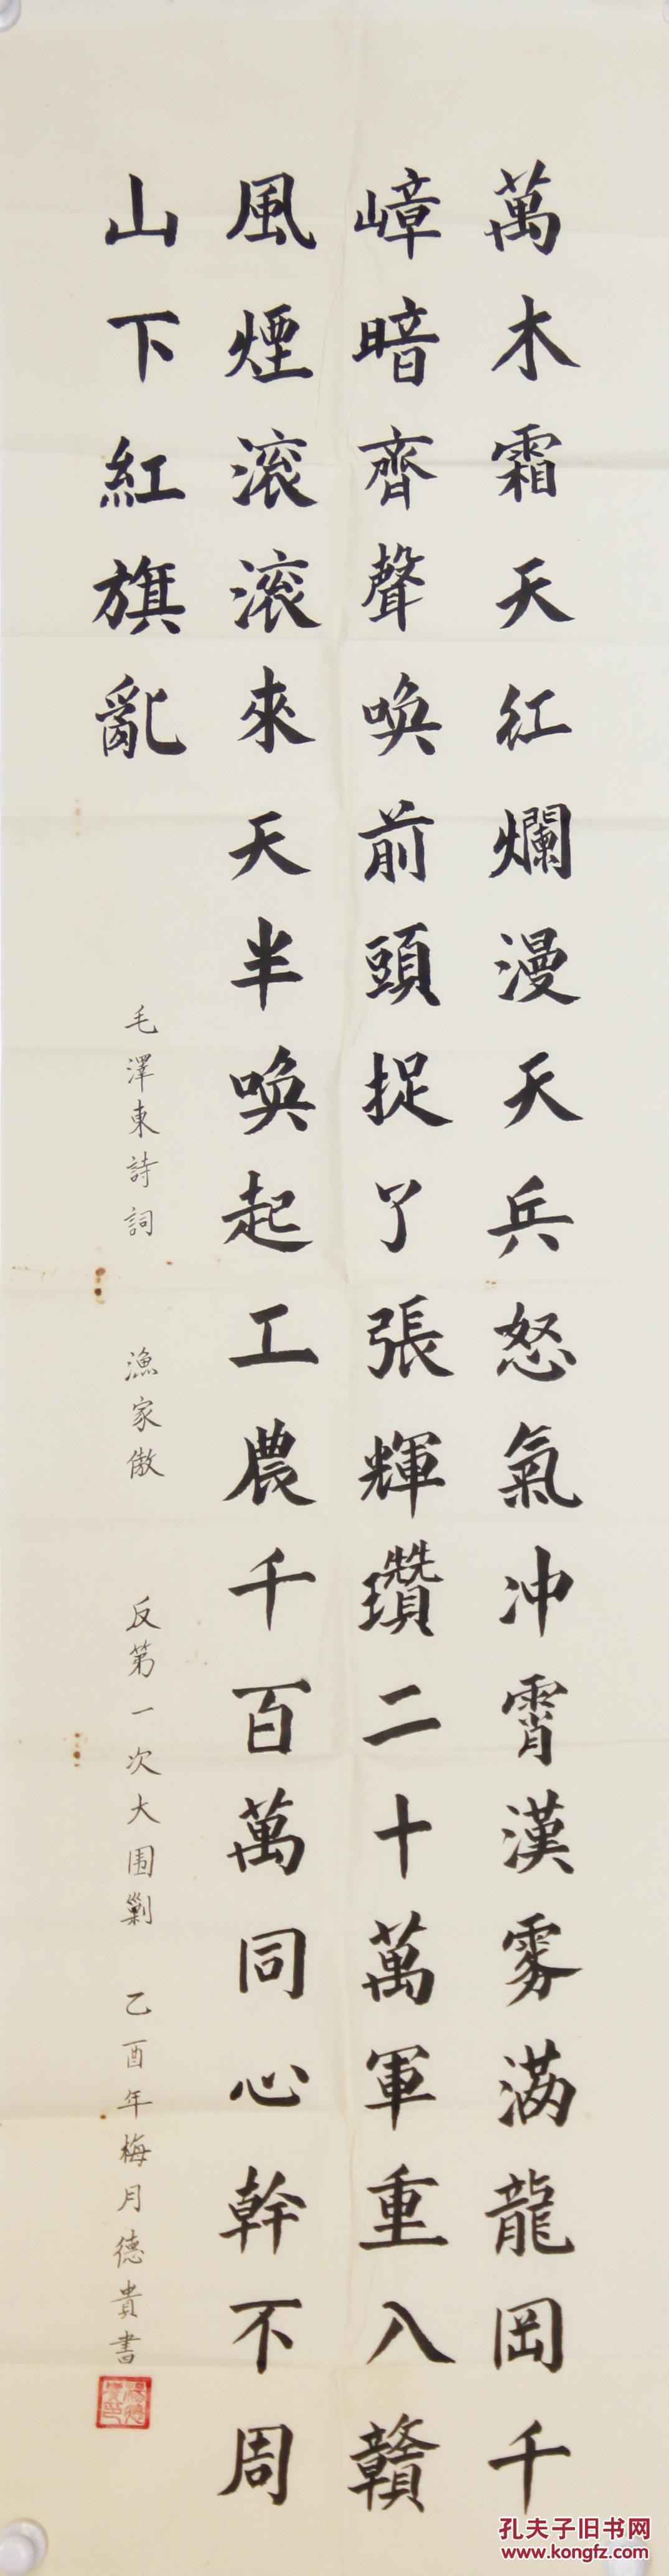 萬木霜天红爛漫天兵怒氣冲霄漢雾满龍岡千
嶂暗齊聲唤前頭捉了張輝瓚二十萬軍重入贛
風煙滚滚來天半唤起工農千百萬同心幹不周
山下紅旗亂
毛澤東詩詞 漁家傲 反第一次大围剿 乙酉年梅月德貴書
孔夫子旧书网
www.kongfz.com